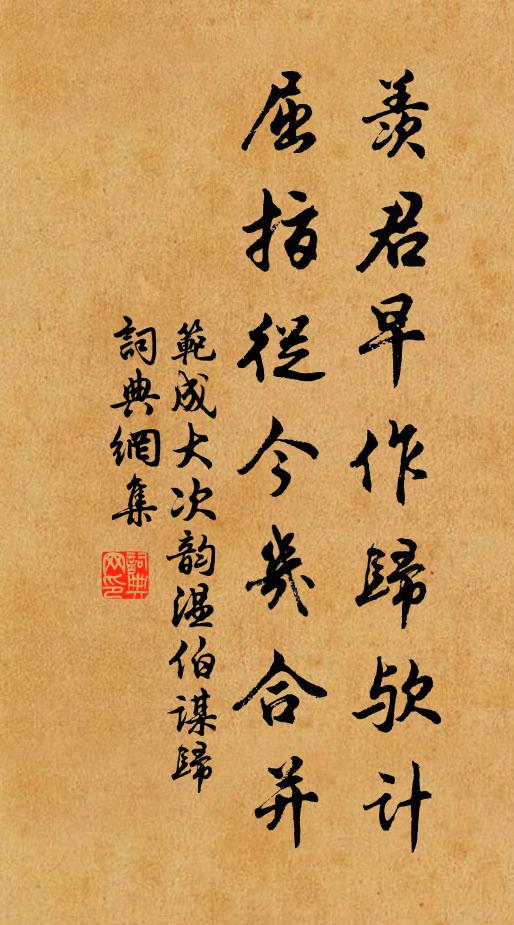 羨君早作歸歟計
屈指從今幾合并
範成大次韵溫伯謀歸
詞典網集
詞典网印